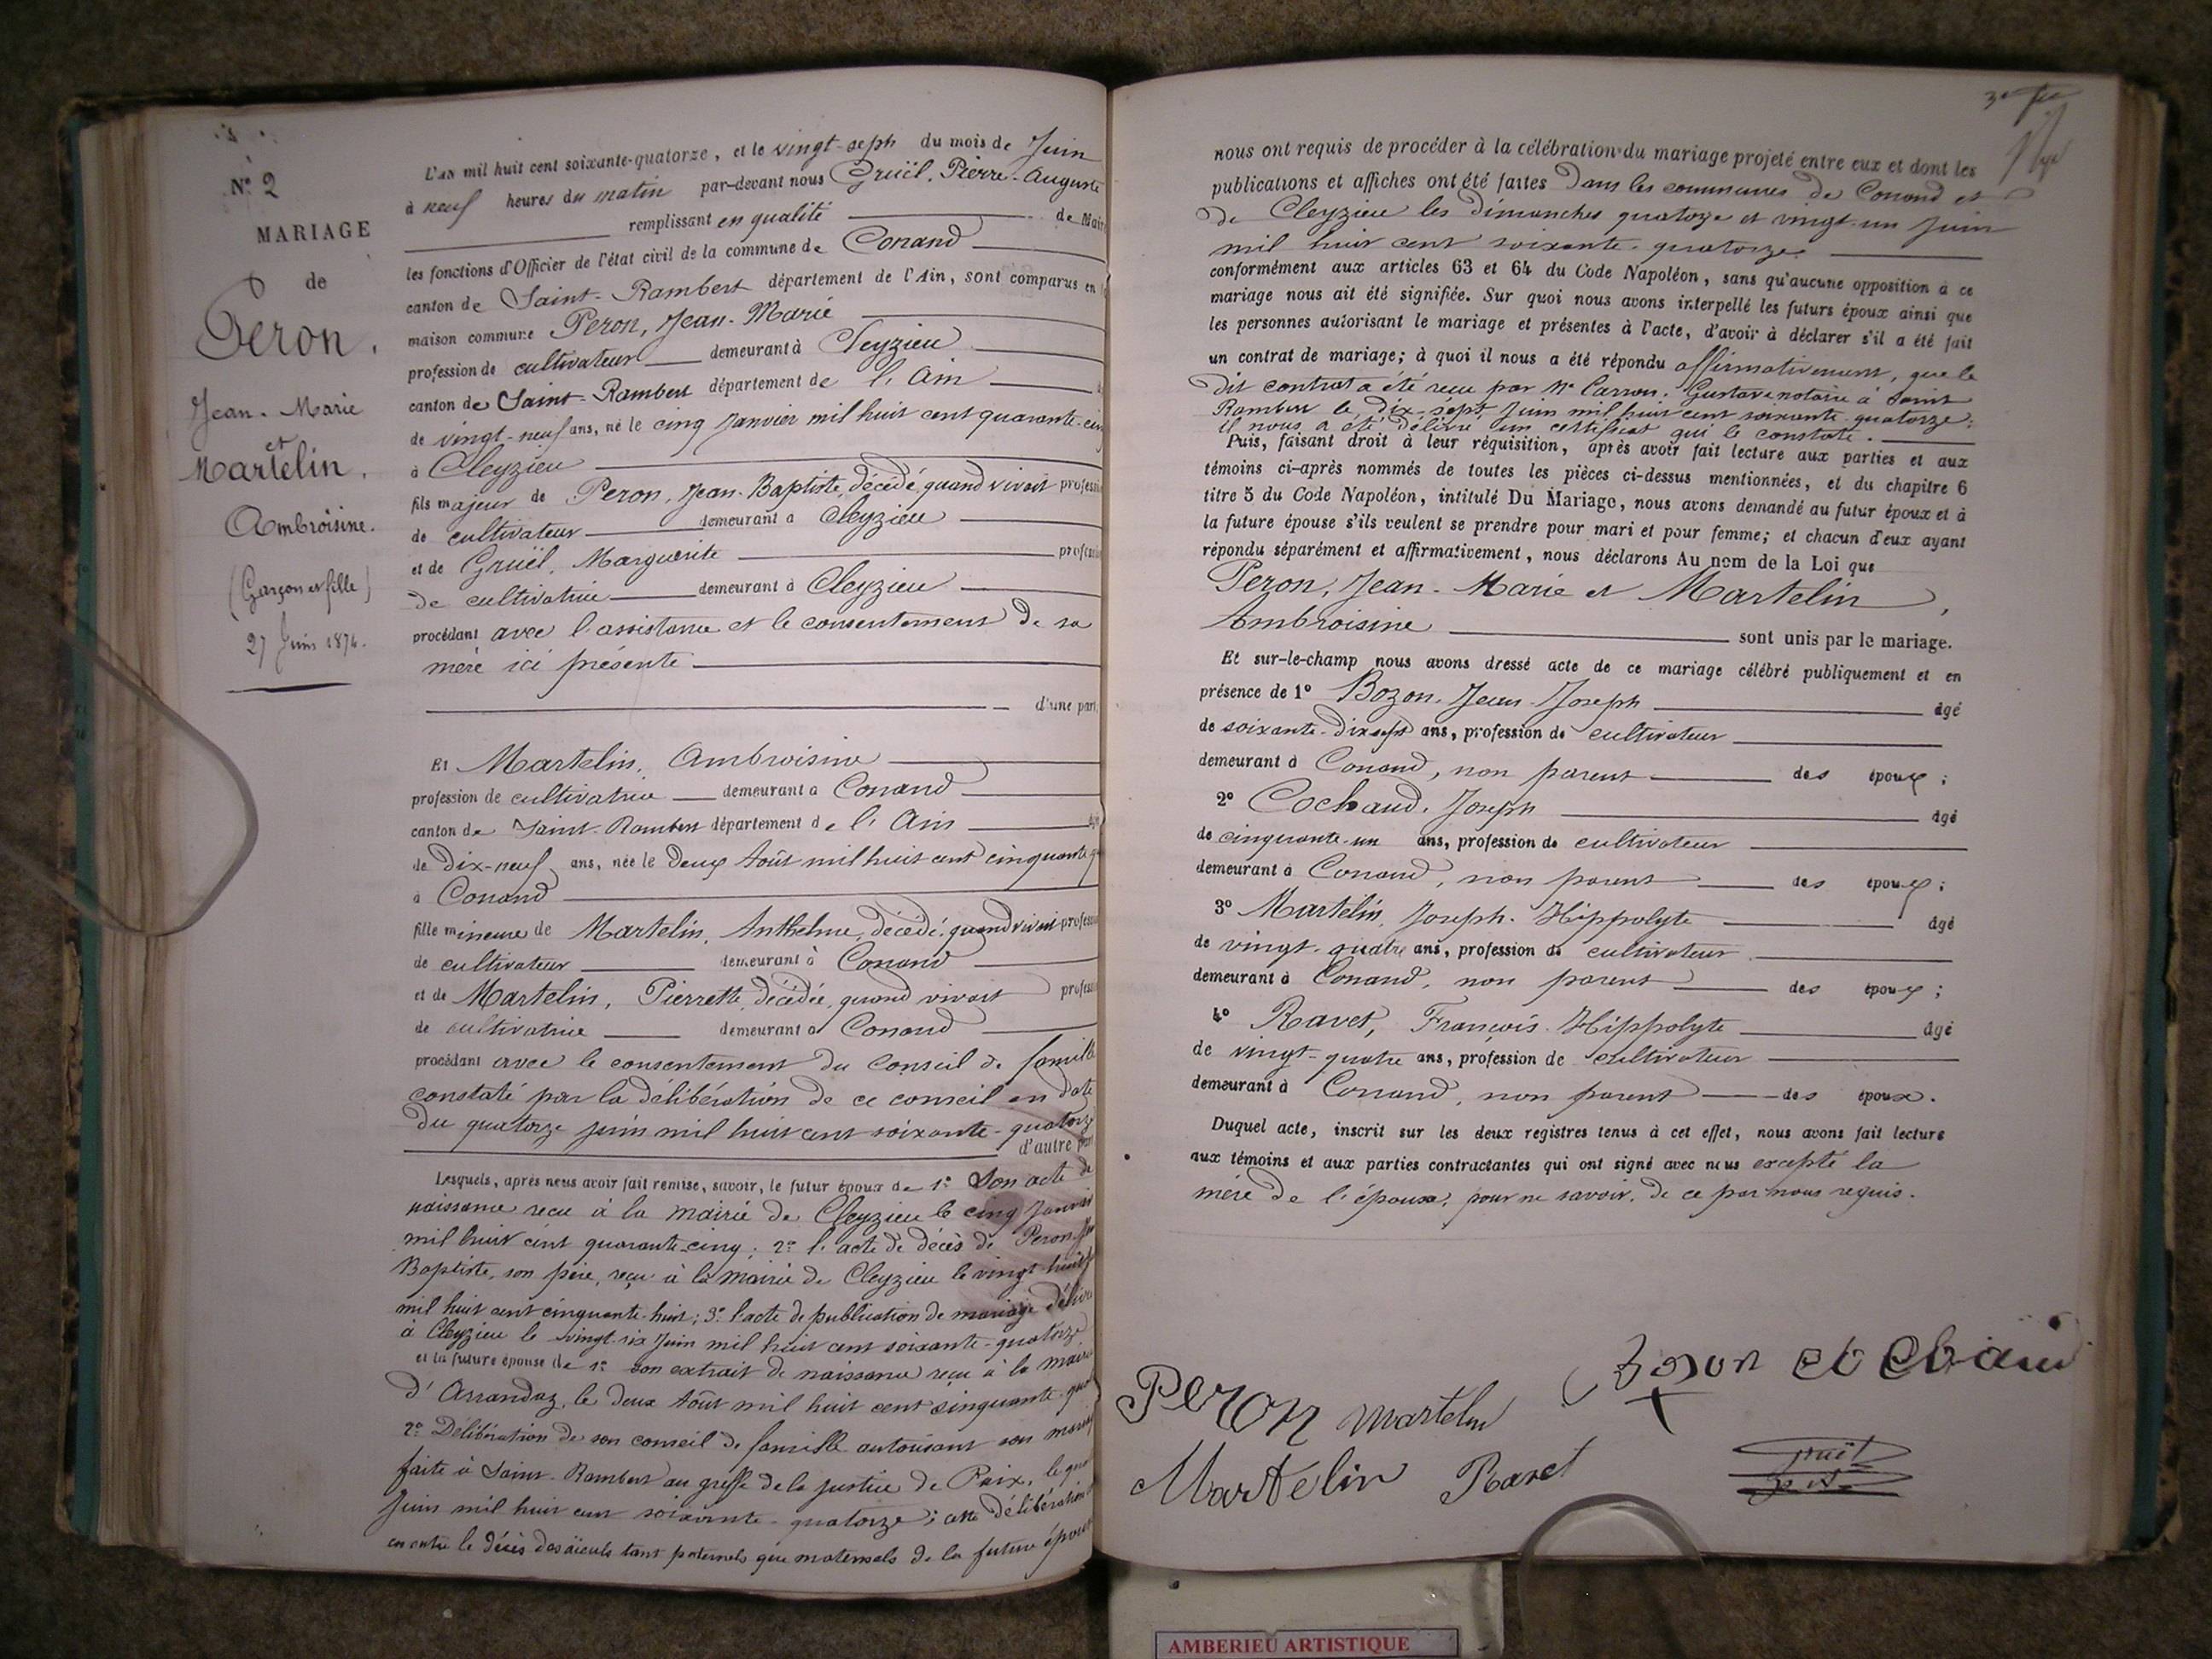 N° 2
MARIAGE
de
Peron,
Jean-Marie
et
Martelin,
Ambroisine.
(Garçon et fille)
27 Juin 1874.
L'an mil huit cent soixante-quatorze, et le vingt-sept du mois de Juin
à neuf heures du matin par-devant nous Gruël, Pierre-Auguste
remplissant en qualité de Maire
les fonctions d'Officier de l'état civil de la commune de Conand
canton de Saint-Rambert département de l'Ain, sont comparus en
maison commune Peron, Jean-Marie
profession de cultivateur demeurant à Cleyzieu
canton de Saint-Rambert département de l'Ain
de vingt-neuf ans, né le cinq Janvier mil huit cent quarante-cinq
à Cleyzieu
fils majeur de Peron, Jean-Baptiste, décédé, quand vivait profession
de cultivateur demeurant à Cleyzieu
et de Gruël, Marguerite profession
de cultivatrice demeurant à Cleyzieu
procédant avec l'assistance et le consentement de sa
mère ici présente
d'une part,
Et Martelin, Ambroisine
profession de cultivatrice demeurant à Conand
canton de Saint-Rambert département de l'Ain
de dix-neuf ans, née le deux Août mil huit cent cinquante
à Conand
fille mineure de Martelin, Anthelme, décédé, quand vivait profession
de cultivateur demeurant à Conand
et de Martelin, Pierrette, décédée, quand vivait profession
de cultivatrice demeurant à Conand
procédant avec le consentement du Conseil de famille
constaté par la délibération de ce conseil en date
du quatorze juin mil huit cent soixante-quatorze
d'autre part
Lesquels, après nous avoir fait remise, savoir, le futur époux de 1° Son acte de
naissance reçu à la mairie de Cleyzieu le cinq Janvier
mil huit cent quarante-cinq; 2° l'acte de décès de Peron
Baptiste, son père, reçu à la mairie de Cleyzieu le vingt-huit
mil huit cent cinquante-huit; 3° l'acte de publication de mariage délivré
à Cleyzieu le vingt-six Juin mil huit cent soixante-quatorze
et la future épouse de 1° son extrait de naissance reçu à la mairie
d'Arrandaz, le deux Août mil huit cent cinquante
2° Délibération de son conseil de famille autorisant son mariage
faite à Saint-Rambert au greffe de la justice de Paix, le
Juin mil huit cent soixante-quatorze; cette délibération
en outre le décès des aïeuls tant paternels que maternels de la future épouse
nous ont requis de procéder à la célébration du mariage projeté entre eux et dont les
publications et affiches ont été faites dans les communes de Conand et
de Cleyzieu les dimanches quatorze et vingt-un Juin
mil huit cent soixante-quatorze
conformément aux articles 63 et 64 du Code Napoléon, sans qu'aucune opposition à ce
mariage nous ait été signifiée. Sur quoi nous avons interpellé les futurs époux ainsi que
les personnes autorisant le mariage et présentes à l'acte, d'avoir à déclarer s'il a été fait
un contrat de mariage; à quoi il nous a été répondu affirmativement, que le
dit contrat a été reçu par Me Carron, Gustave notaire à Saint
Rambert le dix-sept Juin mil huit cent soixante-quatorze;
il nous a été délivré un certificat qui le constate.
Puis, faisant droit à leur réquisition, après avoir fait lecture aux parties et aux
témoins ci-après nommés de toutes les pièces ci-dessus mentionnées, et du chapitre 6
titre 5 du Code Napoléon, intitulé Du Mariage, nous avons demandé au futur époux et à
la future épouse s'ils veulent se prendre pour mari et pour femme; et chacun d'eux ayant
répondu séparément et affirmativement, nous déclarons Au nom de la Loi que
Peron, Jean-Marie et Martelin,
Ambroisine sont unis par le mariage.
Et sur-le-champ nous avons dressé acte de ce mariage célébré publiquement et en
présence de 1° Bozon, Jean-Joseph âgé
de soixante-dix-sept ans, profession de cultivateur
demeurant à Conand, non parent des époux;
2° Cochaud, Joseph âgé
de cinquante-un ans, profession de cultivateur
demeurant à Conand, non parent des époux;
3° Martelin, Joseph-Hippolyte âgé
de vingt-quatre ans, profession de cultivateur
demeurant à Conand, non parent des époux;
4° Ravet, François-Hippolyte âgé
de vingt-quatre ans, profession de cultivateur
demeurant à Conand, non parent des époux.
Duquel acte, inscrit sur les deux registres tenus à cet effet, nous avons fait lecture
aux témoins et aux parties contractantes qui ont signé avec nous excepté la
mère de l'époux, pour ne savoir, de ce par nous requis.
Peron Martelin Bozon Cochaud
Martelin Ravet Gruël
AMBERIEU ARTISTIQUE